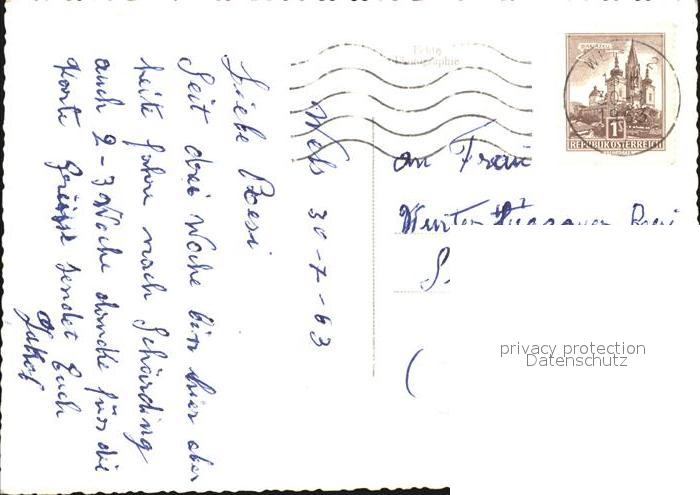 Wels 30-7-63
Liebe Roesi
Seit drei Woche bin hier aber
heite fahre nach Schärding
auch 2-3 Woche dancke füs die
Karte Grüsse sendet Euch
Jakob
Echte
Photographie
MARIAZELL
1S
REPUBLIK ÖSTERREICH
W
63
an Frau
Winter
S
(
privacy protection
Datenschutz